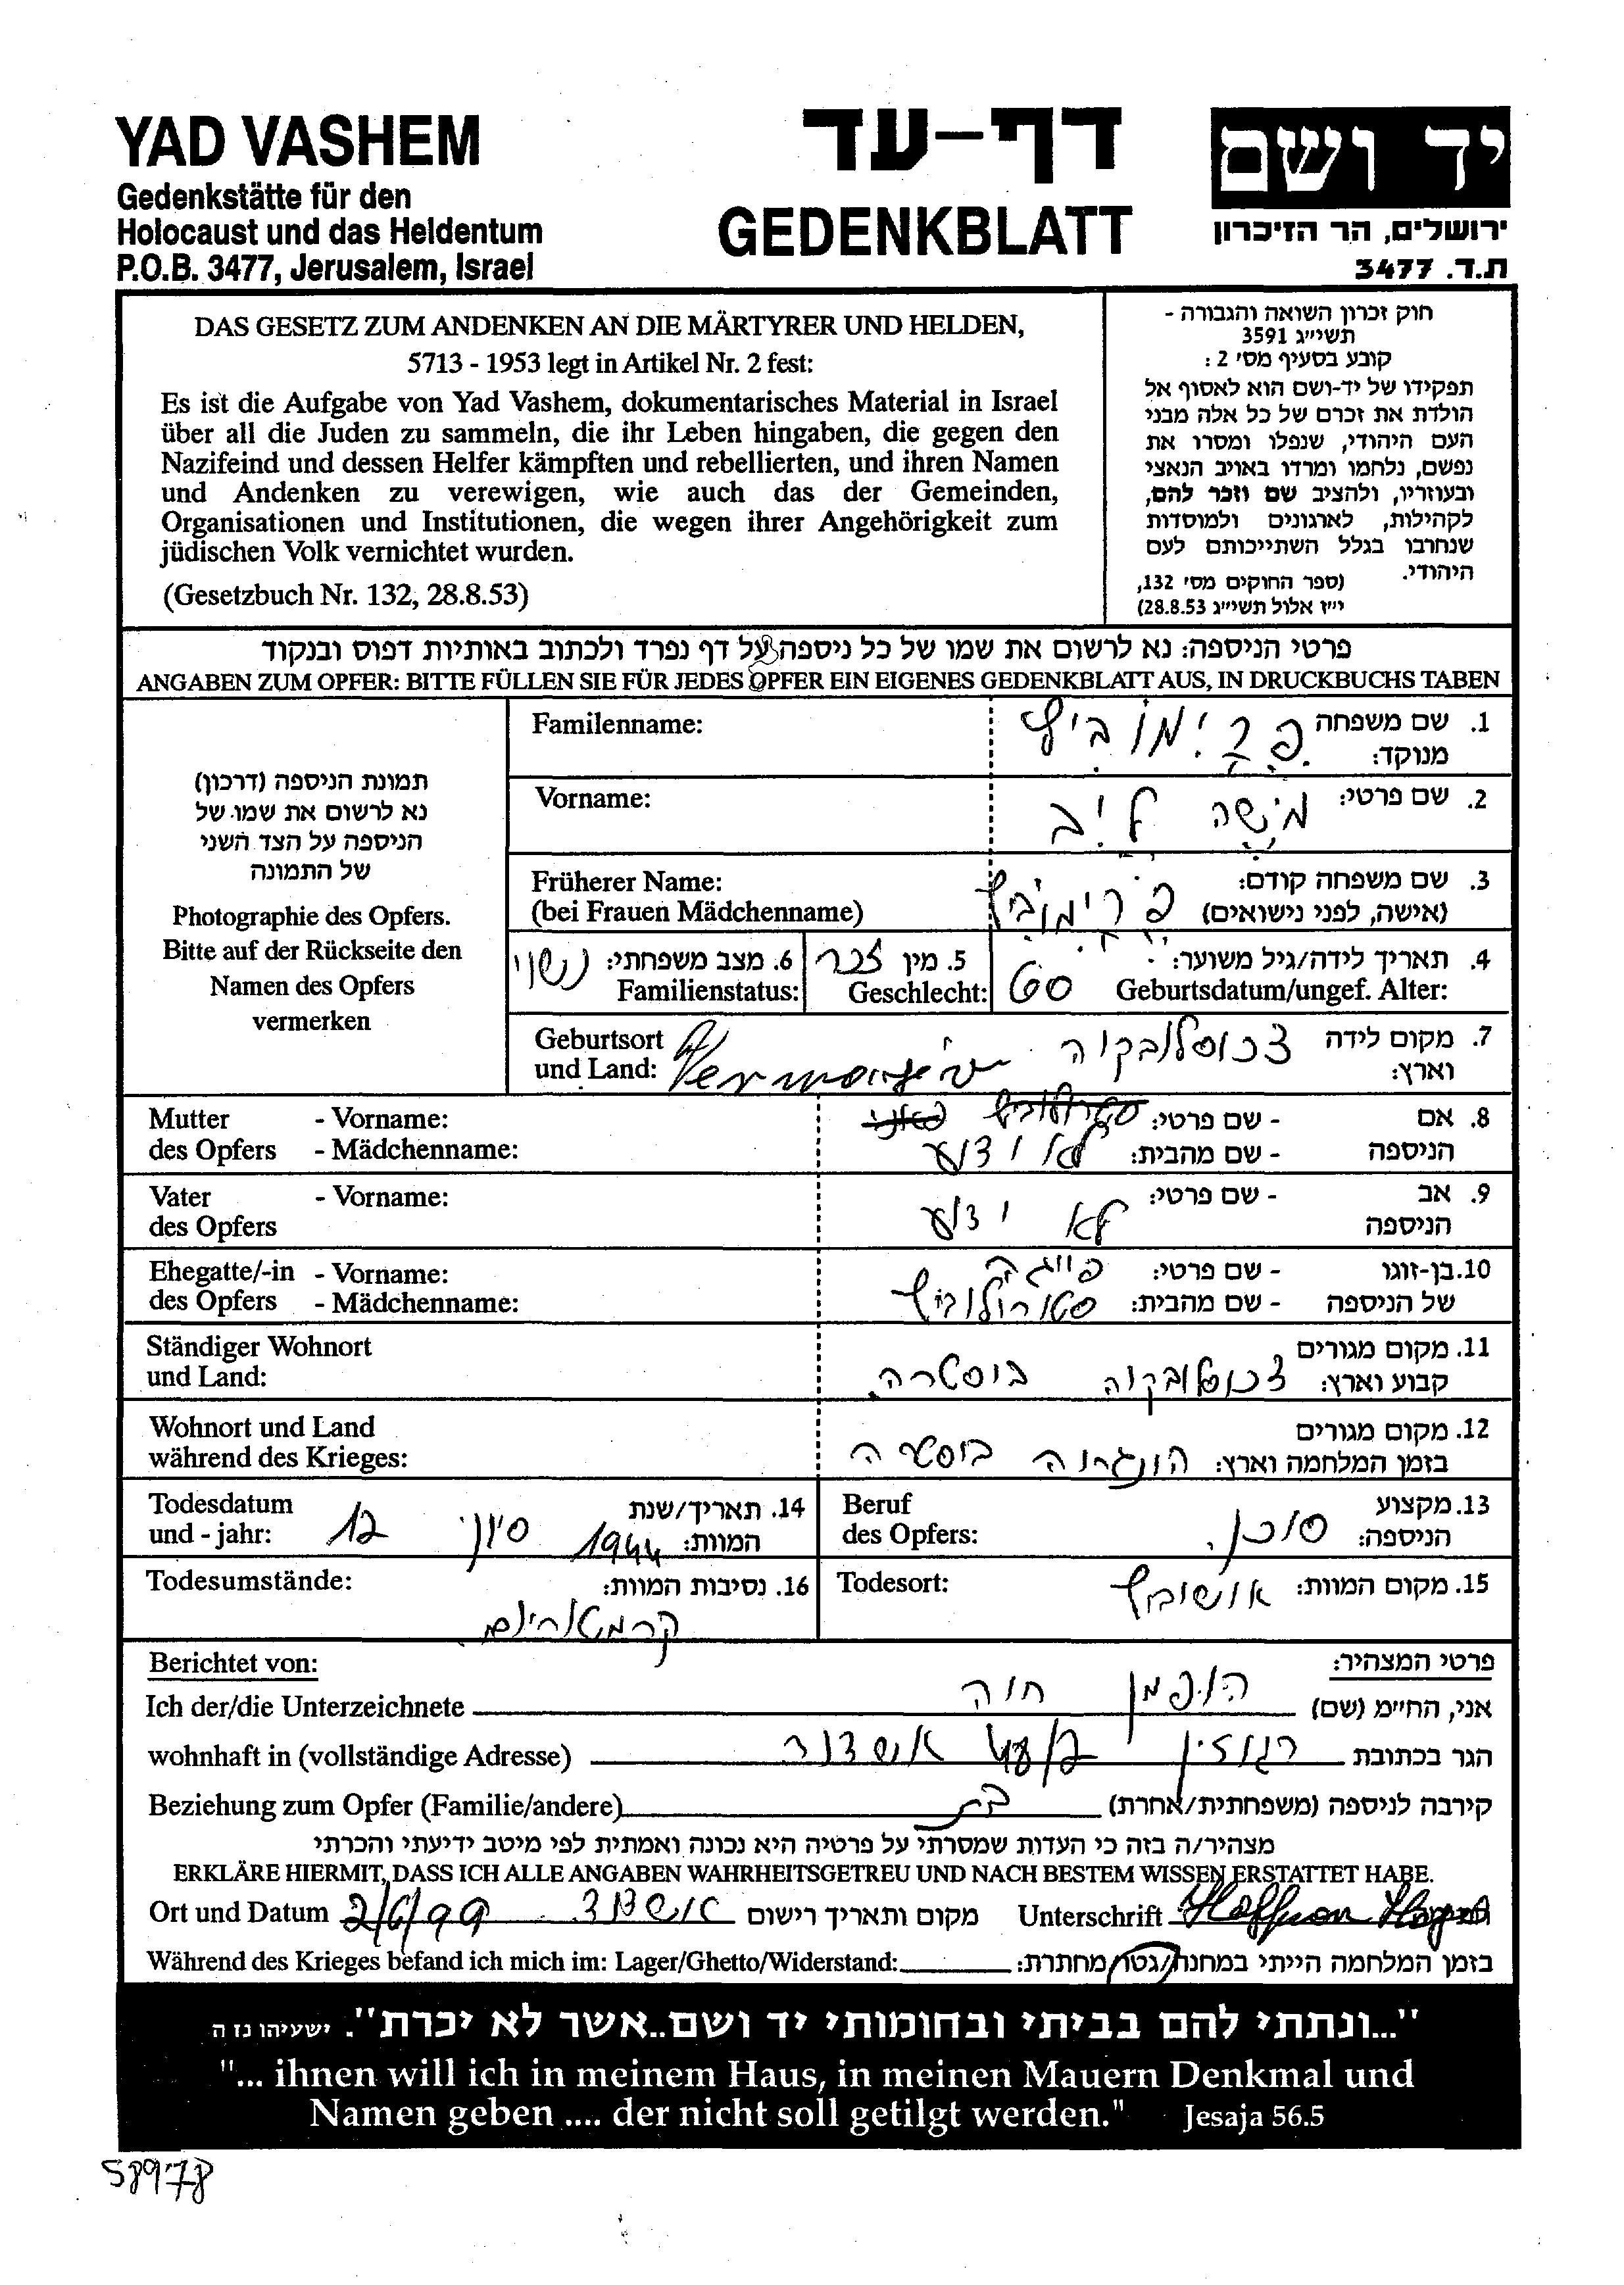 YAD VASHEM
Gedenkstätte für den
Holocaust und das Heldentum
P.O.B. 3477, Jerusalem, Israel
דף-עד
GEDENKBLATT
יד ושם
ירושלים, הר הזיכרון
ת.ד. 3477
DAS GESETZ ZUM ANDENKEN AN DIE MÄRTYRER UND HELDEN,
5713 - 1953 legt in Artikel Nr. 2 fest:
Es ist die Aufgabe von Yad Vashem, dokumentarisches Material in Israel
über all die Juden zu sammeln, die ihr Leben hingaben, die gegen den
Nazifeind und dessen Helfer kämpften und rebellierten, und ihren Namen
und Andenken zu verewigen, wie auch das der Gemeinden,
Organisationen und Institutionen, die wegen ihrer Angehörigkeit zum
jüdischen Volk vernichtet wurden.
(Gesetzbuch Nr. 132, 28.8.53)
חוק זכרון השואה והגבורה -
תשי״ג 3591
קובע בסעיף מס׳ 2 :
תפקידו של יד-ושם הוא לאסוף אל
הולדת את זכרם של כל אלה מבני
העם היהודי, שנפלו ומסרו את
נפשם, נלחמו ומרדו באויב הנאצי
ובעוזריו, ולהציב שם וזכר להם,
לקהילות, לארגונים ולמוסדות
שנחרבו בגלל השתייכותם לעם
היהודי. (ספר החוקים מס׳ 132,
י״ז אלול תשי״ג 28.8.53)
פרטי הניספה: נא לרשום את שמו של כל ניספה על דף נפרד ולכתוב באותיות דפוס ובנקוד
ANGABEN ZUM OPFER: BITTE FÜLLEN SIE FÜR JEDES OPFER EIN EIGENES GEDENKBLATT AUS, IN DRUCKBUCHS TABEN
תמונת הניספה (דרכון)
נא לרשום את שמו של
הניספה על הצד השני
של התמונה
Photographie des Opfers.
Bitte auf der Rückseite den
Namen des Opfers
vermerken
Familenname: 1. שם משפחה
מנוקד:
Vorname: 2. שם פרטי: משה ליב
Früherer Name: 3. שם משפחה קודם: פרימוביץ
(bei Frauen Mädchenname) (אישה, לפני נישואים)
4. תאריך לידה/גיל משוער: 60
Geburtsdatum/ungef. Alter:
5. מין זכר
Geschlecht:
6. מצב משפחתי: נשוי
Familienstatus:
Geburtsort 7. מקום לידה צכוסלובקיה
und Land: וארץ:
Mutter - Vorname: 8. אם - שם פרטי:
des Opfers - Mädchenname: הניספה - שם מהבית: לא ידוע
Vater - Vorname: 9. אב - שם פרטי: לא ידוע
des Opfers הניספה
Ehegatte/-in - Vorname: 10. בן-זוגו - שם פרטי: פייגה
des Opfers - Mädchenname: של הניספה - שם מהבית:
Ständiger Wohnort 11. מקום מגורים
und Land: קבוע וארץ: צכוסלובקיה בוסטרה
Wohnort und Land 12. מקום מגורים
während des Krieges: בזמן המלחמה וארץ: הונגריה בוסטרה
Beruf 13. מקצוע
des Opfers: הניספה: סוכן
Todesdatum 14. תאריך/שנת
und - jahr: המוות: 1944 סיון 12
Todesort: 15. מקום המוות: אושוביץ
Todesumstände: 16. נסיבות המוות:
קרמטוריום
Berichtet von: פרטי המצהיר:
Ich der/die Unterzeichnete אני, החי״מ (שם) הופמן חוה
wohnhaft in (vollständige Adresse) הגר בכתובת אשדוד
Beziehung zum Opfer (Familie/andere) קירבה לניספה (משפחתית/אחרת) בת
מצהיר/ה בזה כי העדות שמסרתי על פרטיה היא נכונה ואמתית לפי מיטב ידיעתי והכרתי
ERKLÄRE HIERMIT, DASS ICH ALLE ANGABEN WAHRHEITSGETREU UND NACH BESTEM WISSEN ERSTATTET HABE.
Ort und Datum 2/6/99 אשדוד מקום ותאריך רישום Unterschrift Hoffman
Während des Krieges befand ich mich im: Lager/Ghetto/Widerstand: בזמן המלחמה הייתי במחנה/גטו/מחתרת:
"...ונתתי להם בביתי ובחומותי יד ושם..אשר לא יכרת". ישעיהו נז ה
"... ihnen will ich in meinem Haus, in meinen Mauern Denkmal und
Namen geben .... der nicht soll getilgt werden." Jesaja 56.5
58978